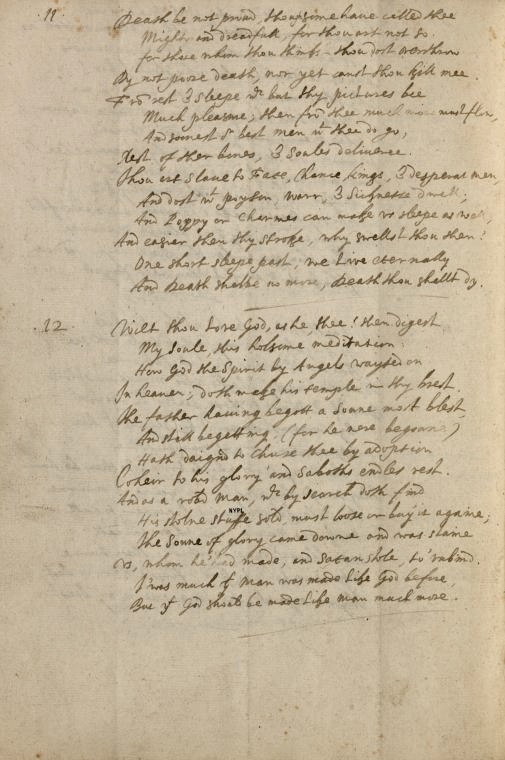 11
Death be not proud, though some have called thee
Mighty and dreadfull, for thou art not so.
for those whom thou think'st thou dost overthrow
Dy not poore death, nor yet canst thou kill mee.
Fro rest & sleepe wch but thy pictures bee
Much pleasure, then fro thee much more must flow,
And soonest or best men wt thee do go,
Rest of ther bones, & Soules deliverie.
Thou art Slave to Fate, chance, kings, & desperat men,
And dost wt poyson, warr, & Sicknesse dwell,
And Poppy or Charmes can make vs sleepe as well,
And easier then thy stroke, why swellst thou then?
One short sleepe past, we Live eternally
And Death shalbe no more, Death thou shallt dy.
12
Wilt thou Love God, as he, thee! then digest
My Soule, this holsome meditation:
How God the Spirit by Angels wayted on
In heaven, doth make his temple in thy brest.
the father having begott a Sonne most blest,
And still begetting (for he nere begonne)
Hath daign'd to Chuse thee by adoption
Coheir to his glory and Saboths endles rest.
And as a robd man, wch by search doth find
His stolne stuffe sold, must loose or buy it againe,
NYPL
the Sonne of glory came downe and was slaine
vs, whom he had made, and Satan stole, to vnbind.
T'was much yt man was made Like God before,
But yt God should be made Like man much more.